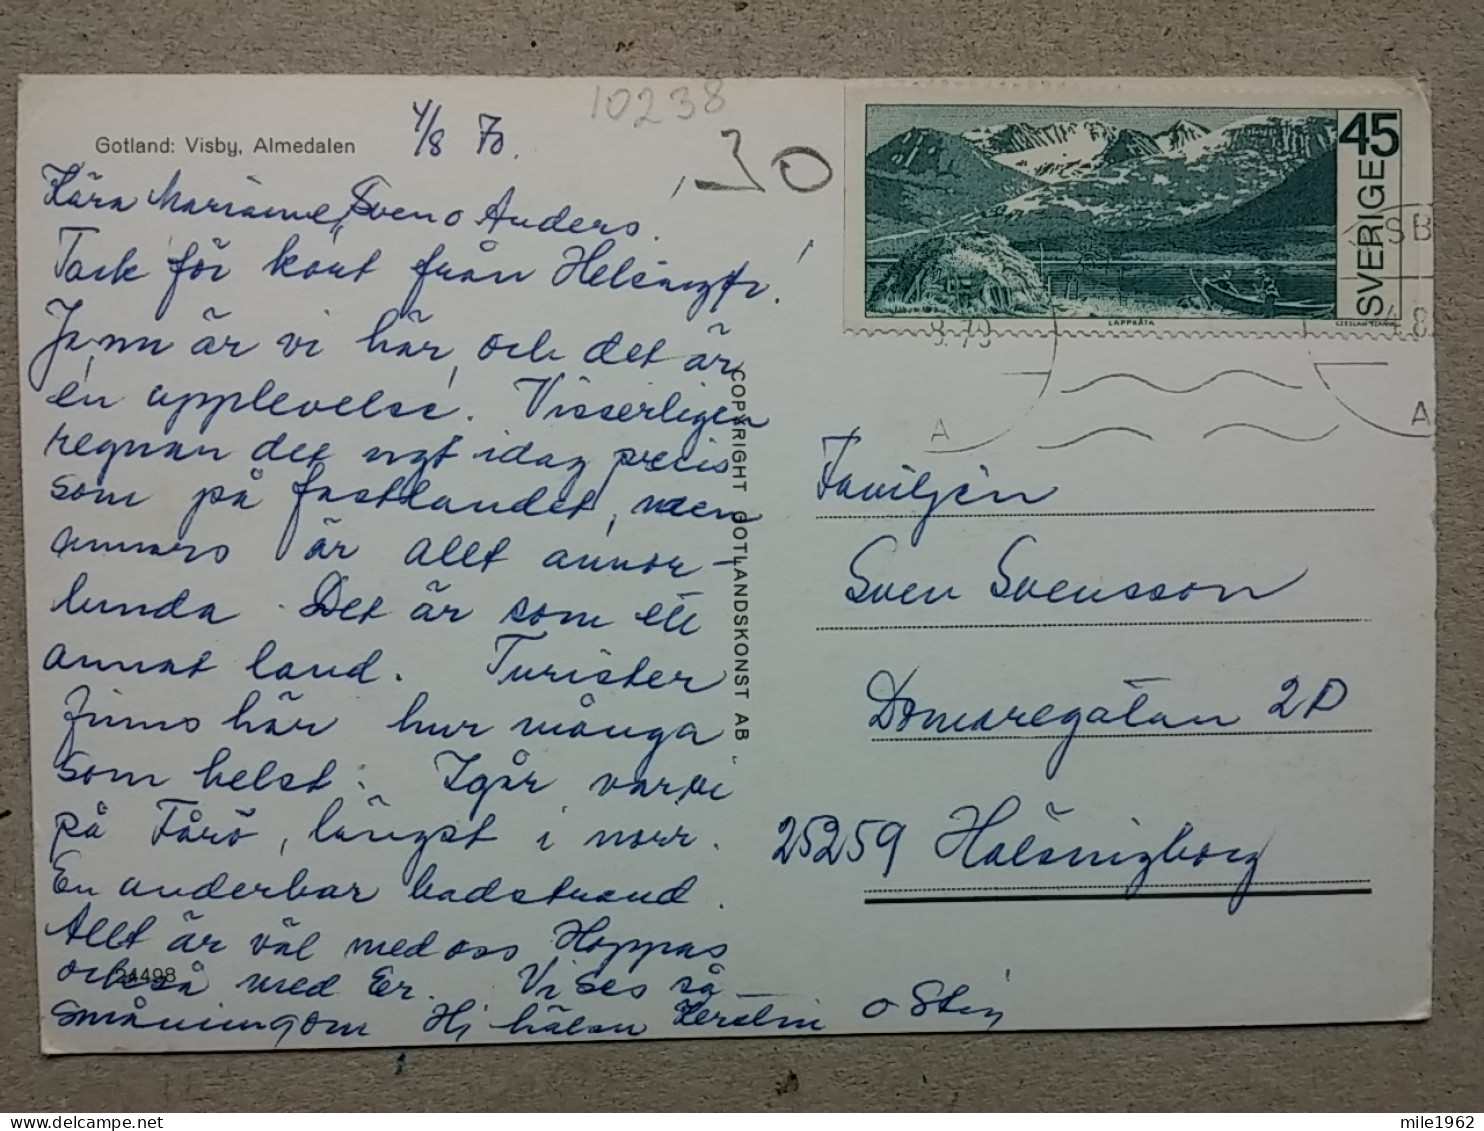 10238
4/8 70.
Gotland: Visby, Almedalen
30
Kära Marianne, Sven o Anders!
Tack för kort från Helsingfr!
Ja, nu är vi här, och det är
en upplevelse. Visserligen
regnar det nyt idag precis
som på fastlandet, men
annars är allt annor-
lunda. Det är som ett
annat land. Turister
finns här hur många
som helst. Igår var vi
på Fårö, längst i norr.
En underbar badstrand.
Allt är väl med oss. Hoppas
också med Er. Vi ses så
småningom. Hj hälsn Kerstin o Stig
24498
COPYRIGHT GOTLANDSKONST AB
45
SVERIGE
LAPPKÅTA
CZESLAW SLANIA
SB
8.70
4.8
A
A
Familjen
Sven Svensson
Domaregatan 2D
25259 Hälsingborg
mile1962